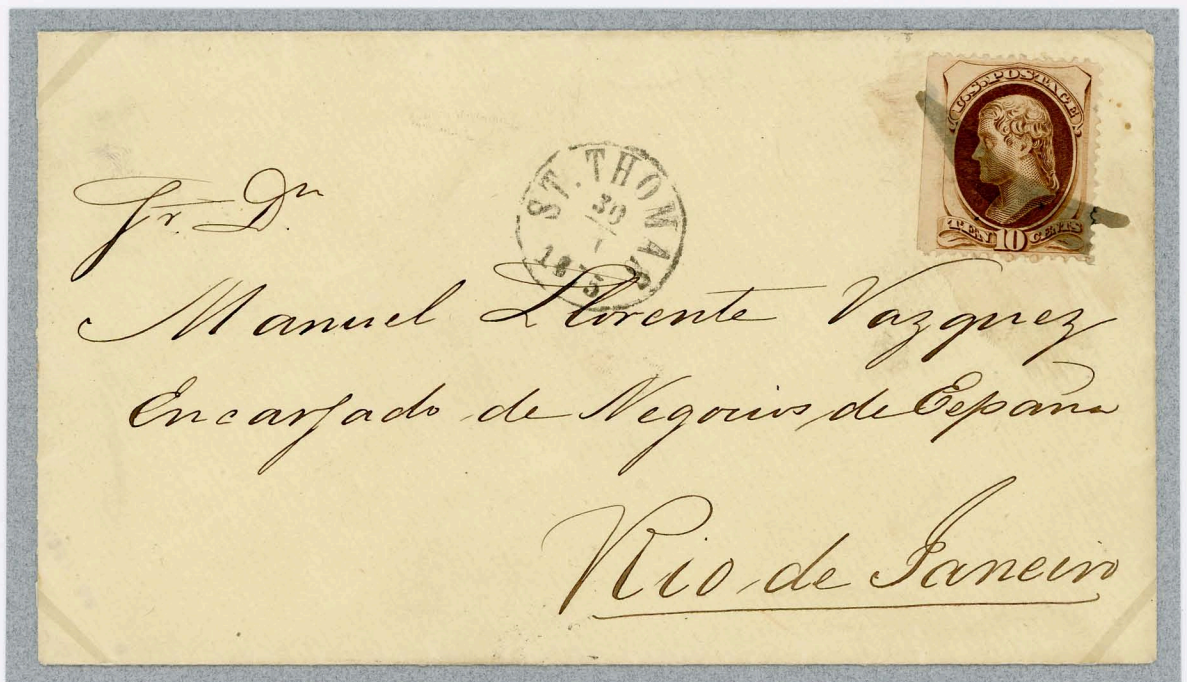 U.S. POSTAGE
TEN 10 CENTS
ST. THOMAS
30
1
1875
Sr. Dn
Manuel Llorente Vazquez
Encargado de Negocios de España
Rio de Janeiro